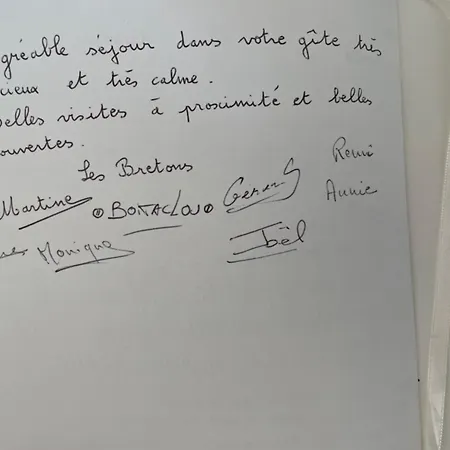 gréable séjour dans votre gîte très
cieux et très calme.
belles visites à proximité et belles
ouvertes.
Les Bretons
Remi
Martine BOKACLOJO Annie
Monique Joël